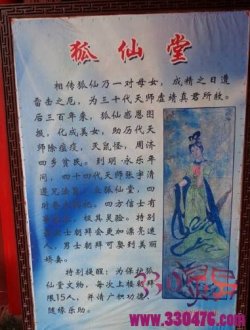 狐仙堂
相传狐仙乃一对母女，成精之日遭
雷击之厄，为三十代天师虚靖真君所救。
后三百年来，狐仙感恩图
报，化成美女，助历代天
师除瘟疫，灭鼠怪，周济
四乡贫民。到明·永乐年
间，四十四代天师张宇清
道兄
狐仙堂，四
四方信士有
极其灵验。特别
会更加漂亮迷
人，男士朝拜可娶到美丽
娇妻。
特别提醒：为保护狐
仙堂文物，每次上楼朝拜
限15人，并请广积功德，
随缘乐助。
www.330476.com